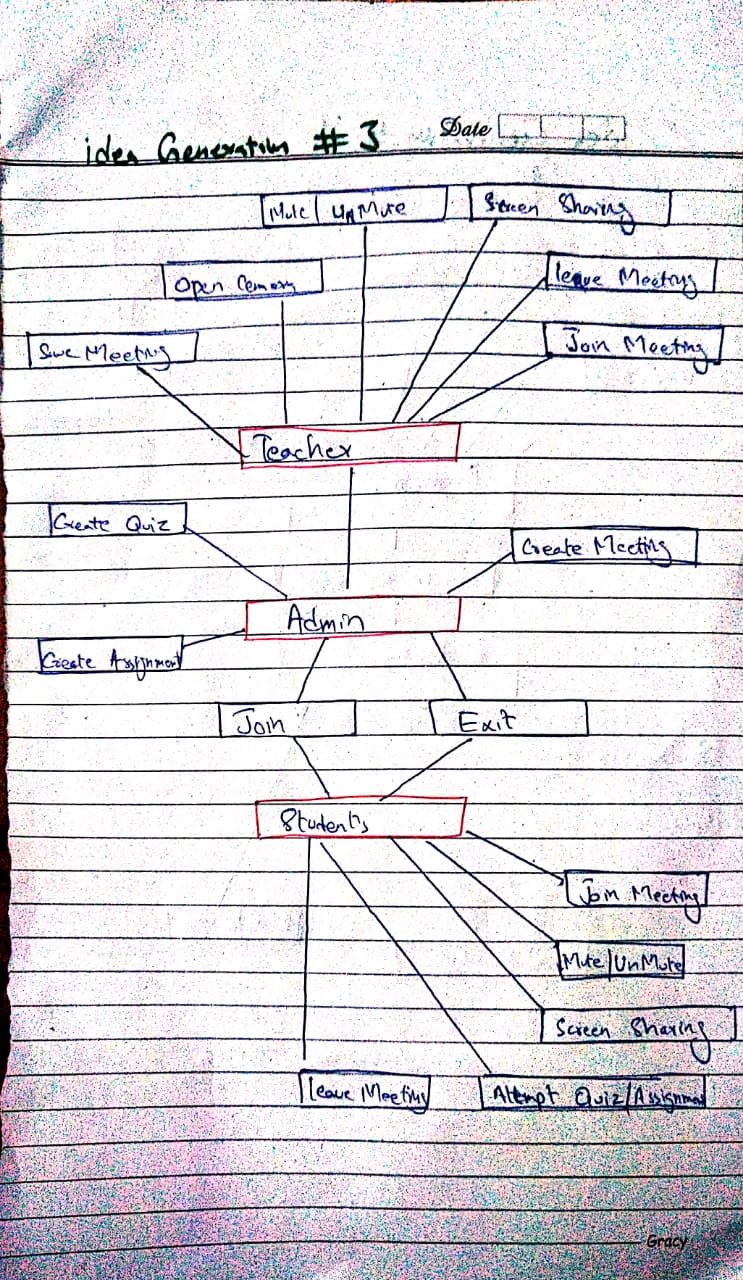 idea Generation # 3
Date
Mute | UnMute
Screen Sharing
Open
leave Meeting
Save Meeting
Join Meeting
Teacher
Create Quiz
Create Meeting
Admin
Create Assignment
Join
Exit
Students
Join Meeting
Mute/UnMute
Screen Sharing
leave Meeting
Attempt Quiz/Assignment
Gracy